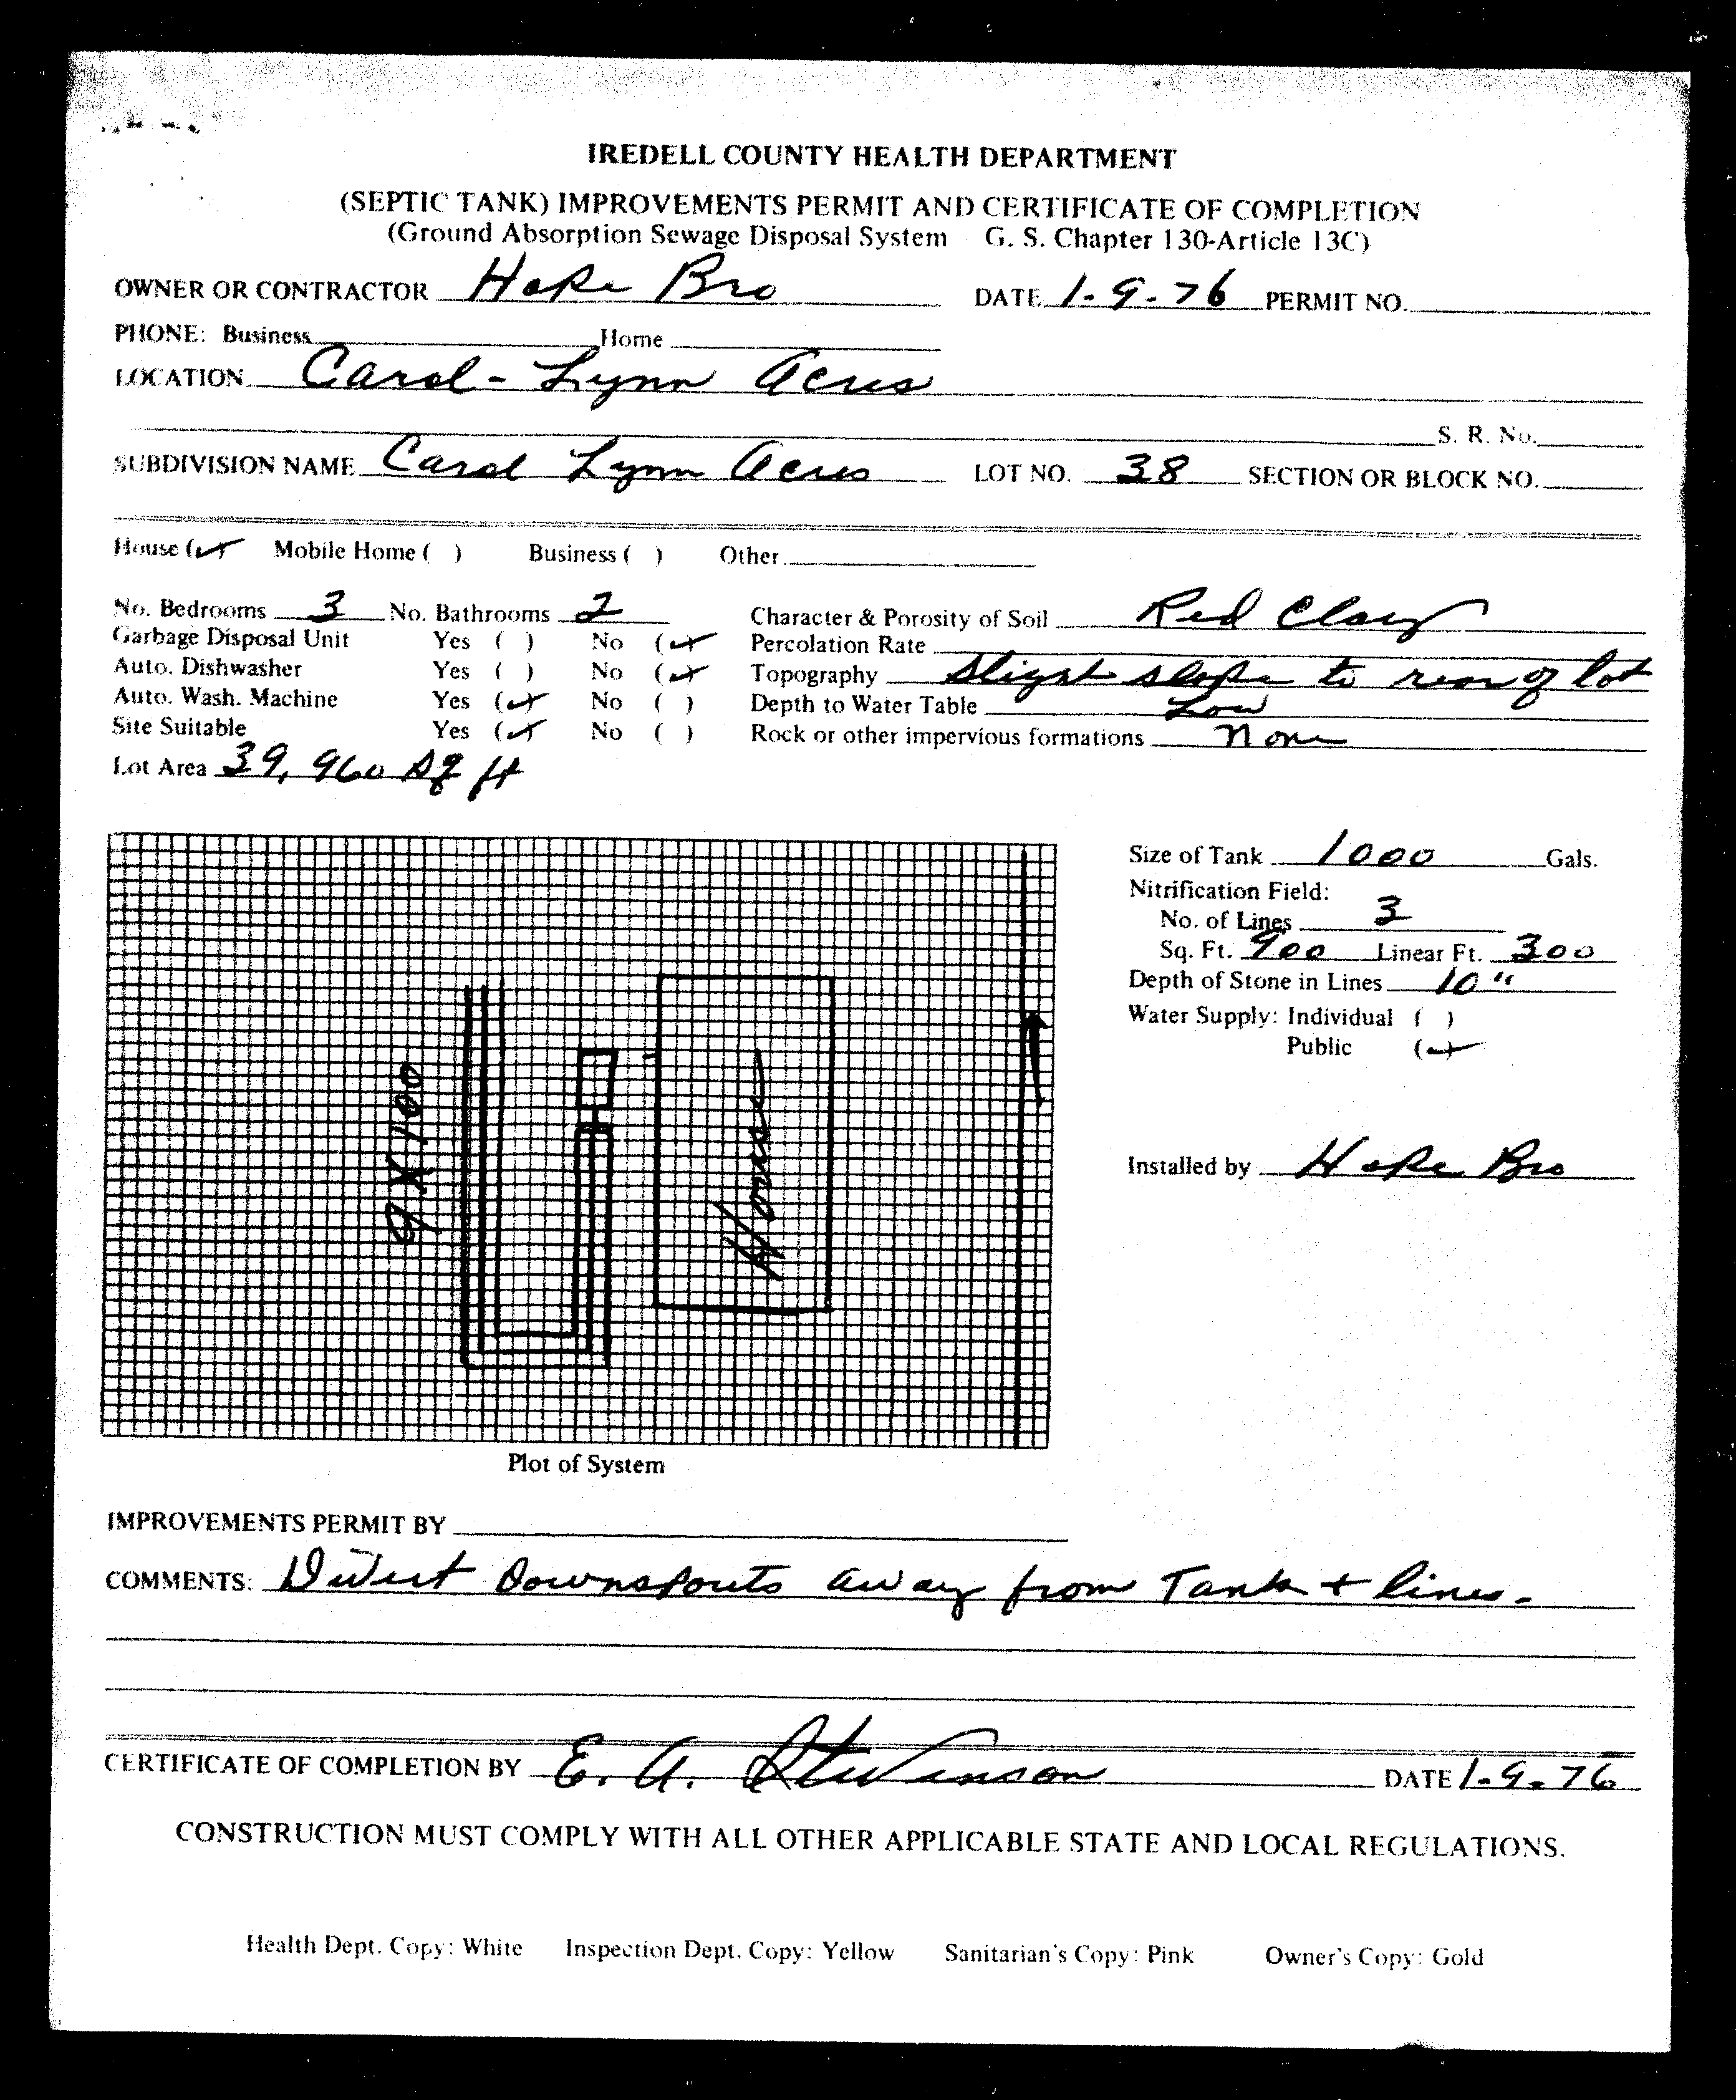 IREDELL COUNTY HEALTH DEPARTMENT
(SEPTIC TANK) IMPROVEMENTS PERMIT AND CERTIFICATE OF COMPLETION
(Ground Absorption Sewage Disposal System G. S. Chapter 130-Article 13C)
OWNER OR CONTRACTOR Hoke Bro DATE 1-9-76 PERMIT NO.
PHONE: Business Home
LOCATION Carol-Lynn Acres
S. R. No.
SUBDIVISION NAME Carol Lynn Acres LOT NO. 38 SECTION OR BLOCK NO.
House (✓) Mobile Home ( ) Business ( ) Other
No. Bedrooms 3 No. Bathrooms 2 Character & Porosity of Soil Red Clay
Garbage Disposal Unit Yes ( ) No (✓) Percolation Rate
Auto. Dishwasher Yes ( ) No (✓) Topography Slight slope to rear of lot
Auto. Wash. Machine Yes (✓) No ( ) Depth to Water Table Low
Site Suitable Yes (✓) No ( ) Rock or other impervious formations None
Lot Area 39,960 sq ft
Size of Tank 1000 Gals.
Nitrification Field:
No. of Lines 3
Sq. Ft. 900 Linear Ft. 300
Depth of Stone in Lines 10"
Water Supply: Individual ( )
Public (✓)
Installed by Hoke Bro
9 X 100
House
Plot of System
IMPROVEMENTS PERMIT BY
COMMENTS: Divert Downspouts away from Tank + lines.
CERTIFICATE OF COMPLETION BY E. A. Stevenson DATE 1-9-76
CONSTRUCTION MUST COMPLY WITH ALL OTHER APPLICABLE STATE AND LOCAL REGULATIONS.
Health Dept. Copy: White Inspection Dept. Copy: Yellow Sanitarian's Copy: Pink Owner's Copy: Gold